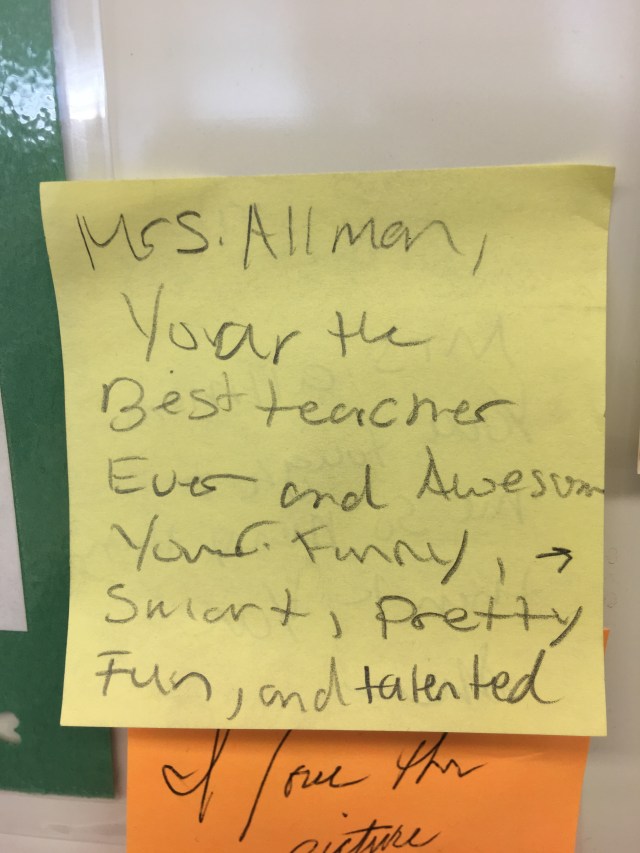 Mrs. Allman,
Your the
Best teacher
Ever and Awesom
Your Funny, →
Smart, Pretty
Fun, and talented
I love this
picture